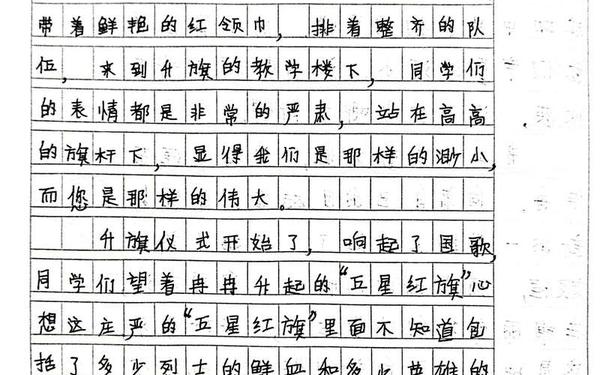 带着鲜艳的红领巾，排着整齐的队
伍，来到升旗的教学楼下，同学们
的表情都是非常的严肃，站在高高
的旗杆下，显得我们是那样的渺小，
而您是那样的伟大。
升旗仪式开始了，响起了国歌，
同学们望着冉冉升起的“五星红旗”心
想这庄严的“五星红旗”里面不知道包
括了多少烈士的鲜血和多少英雄的